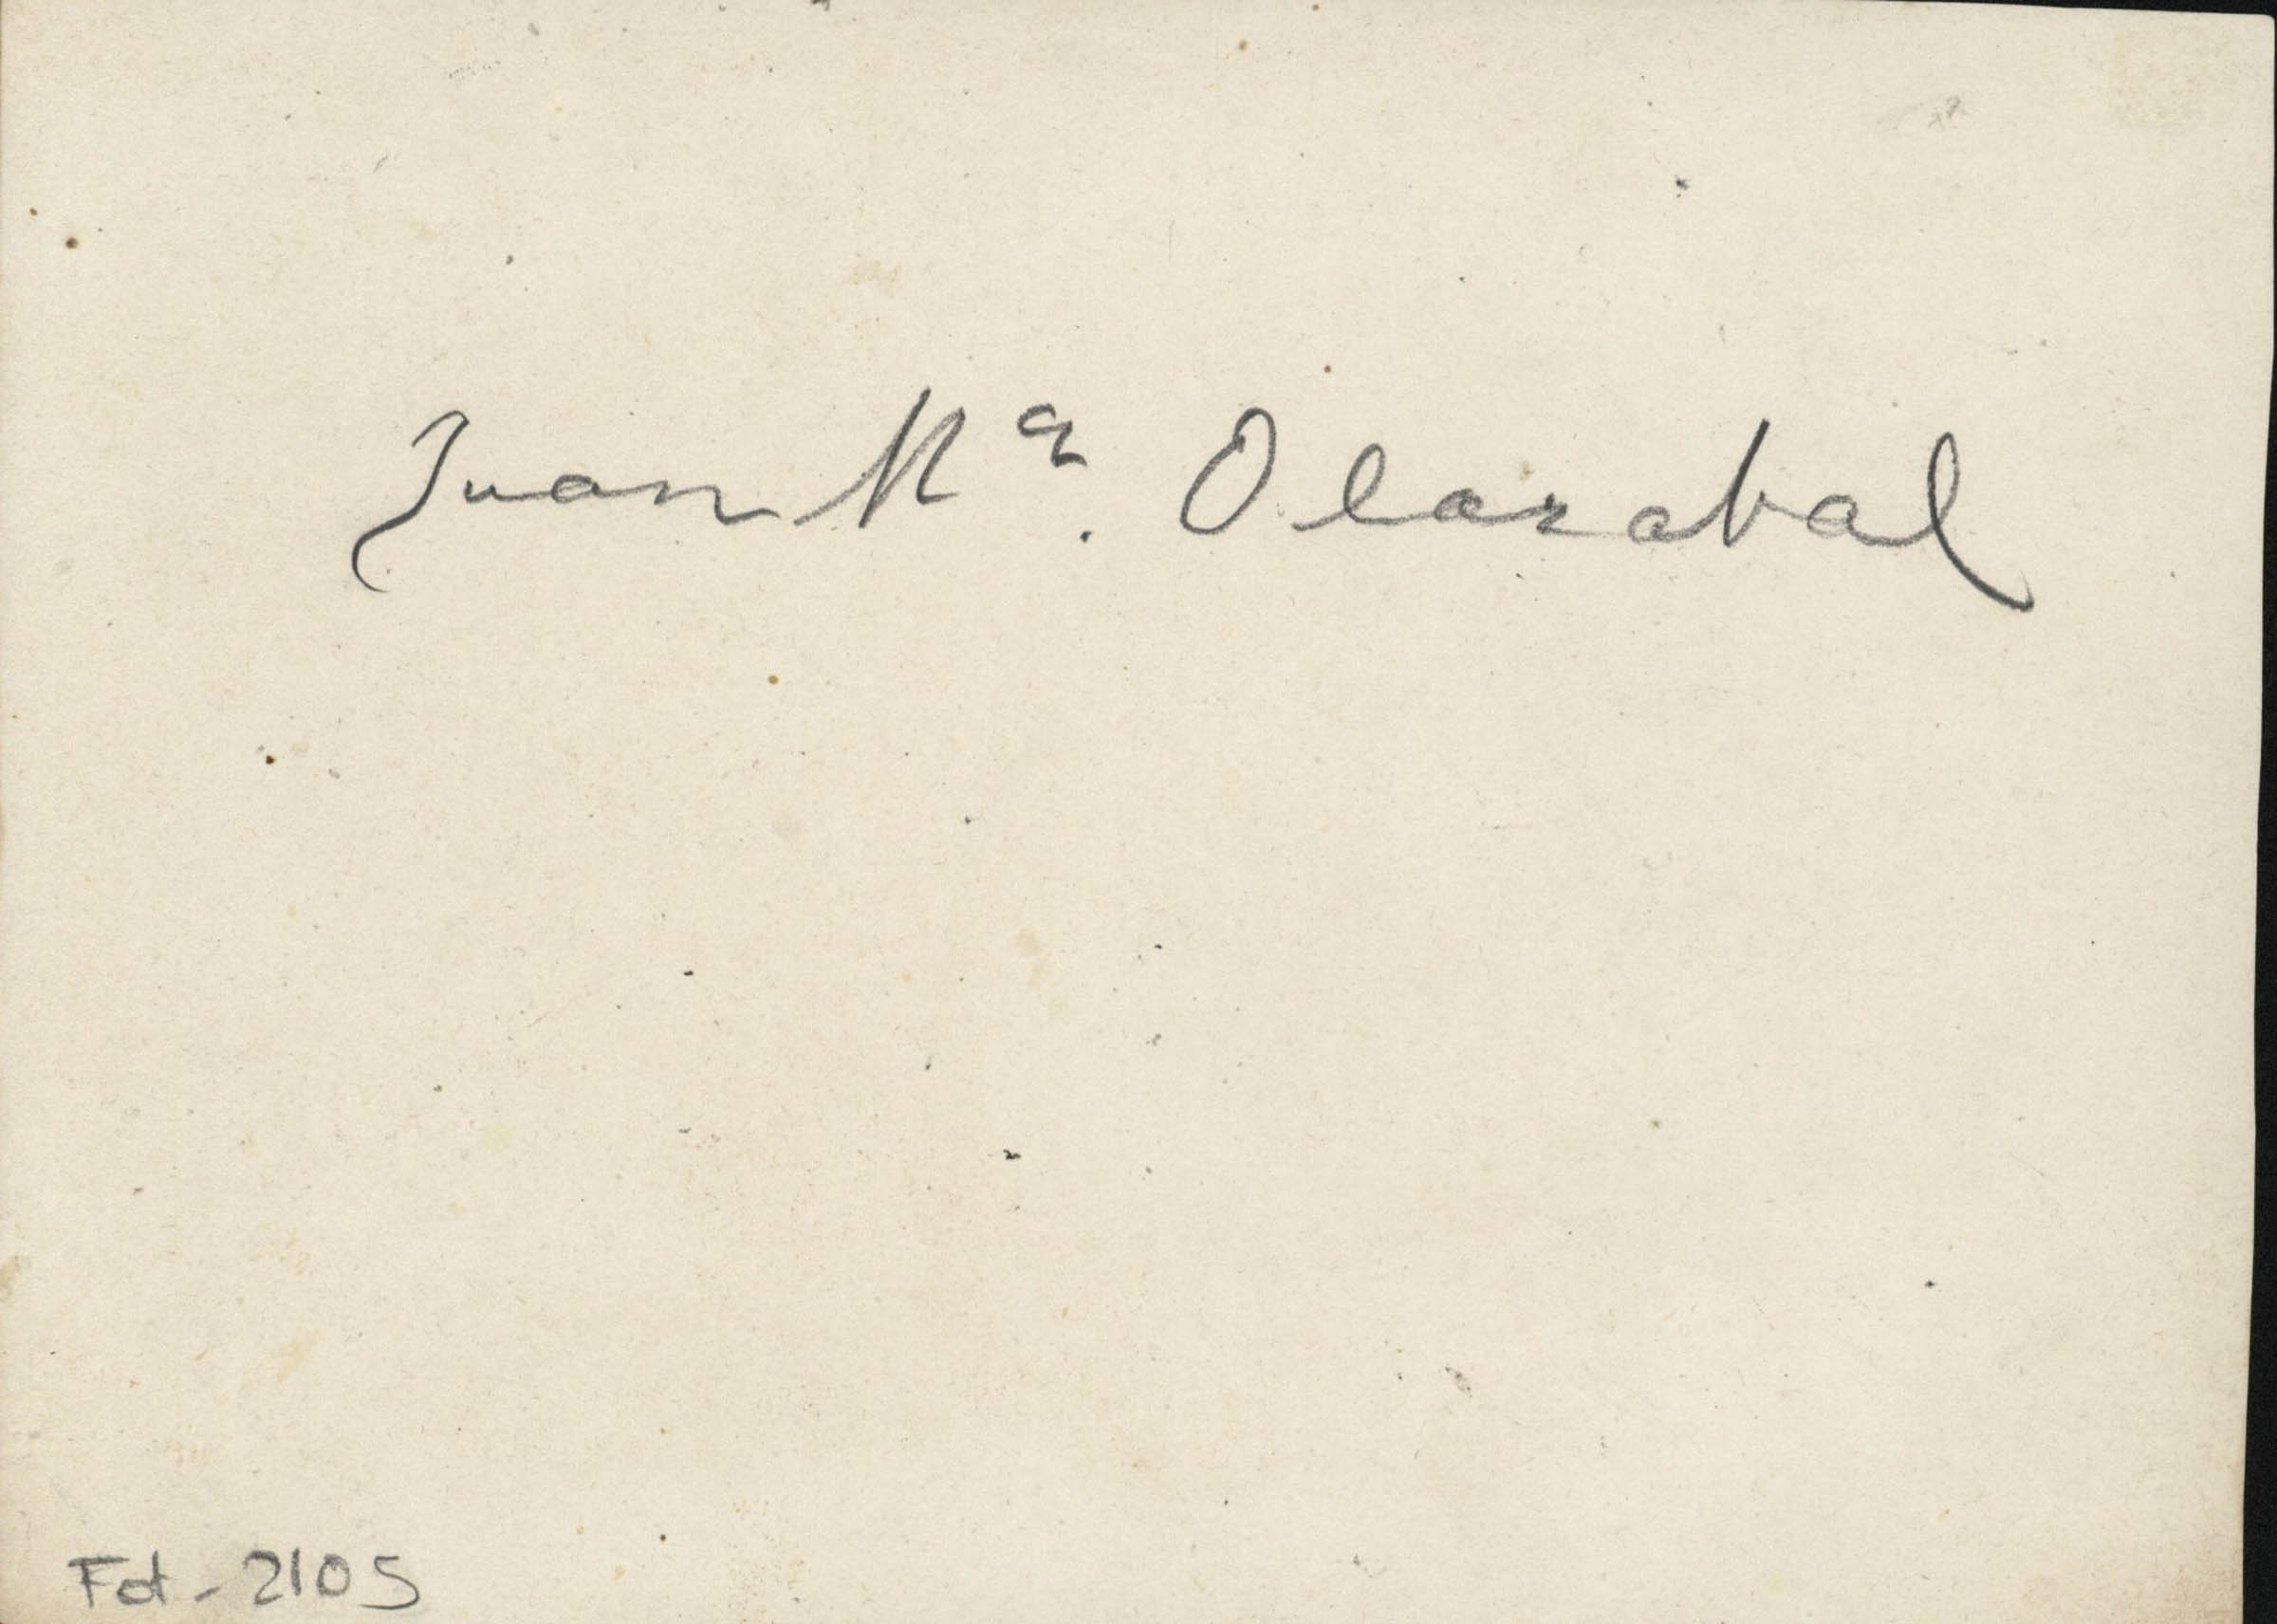 Juan Mª. Olazabal
Fot-2105